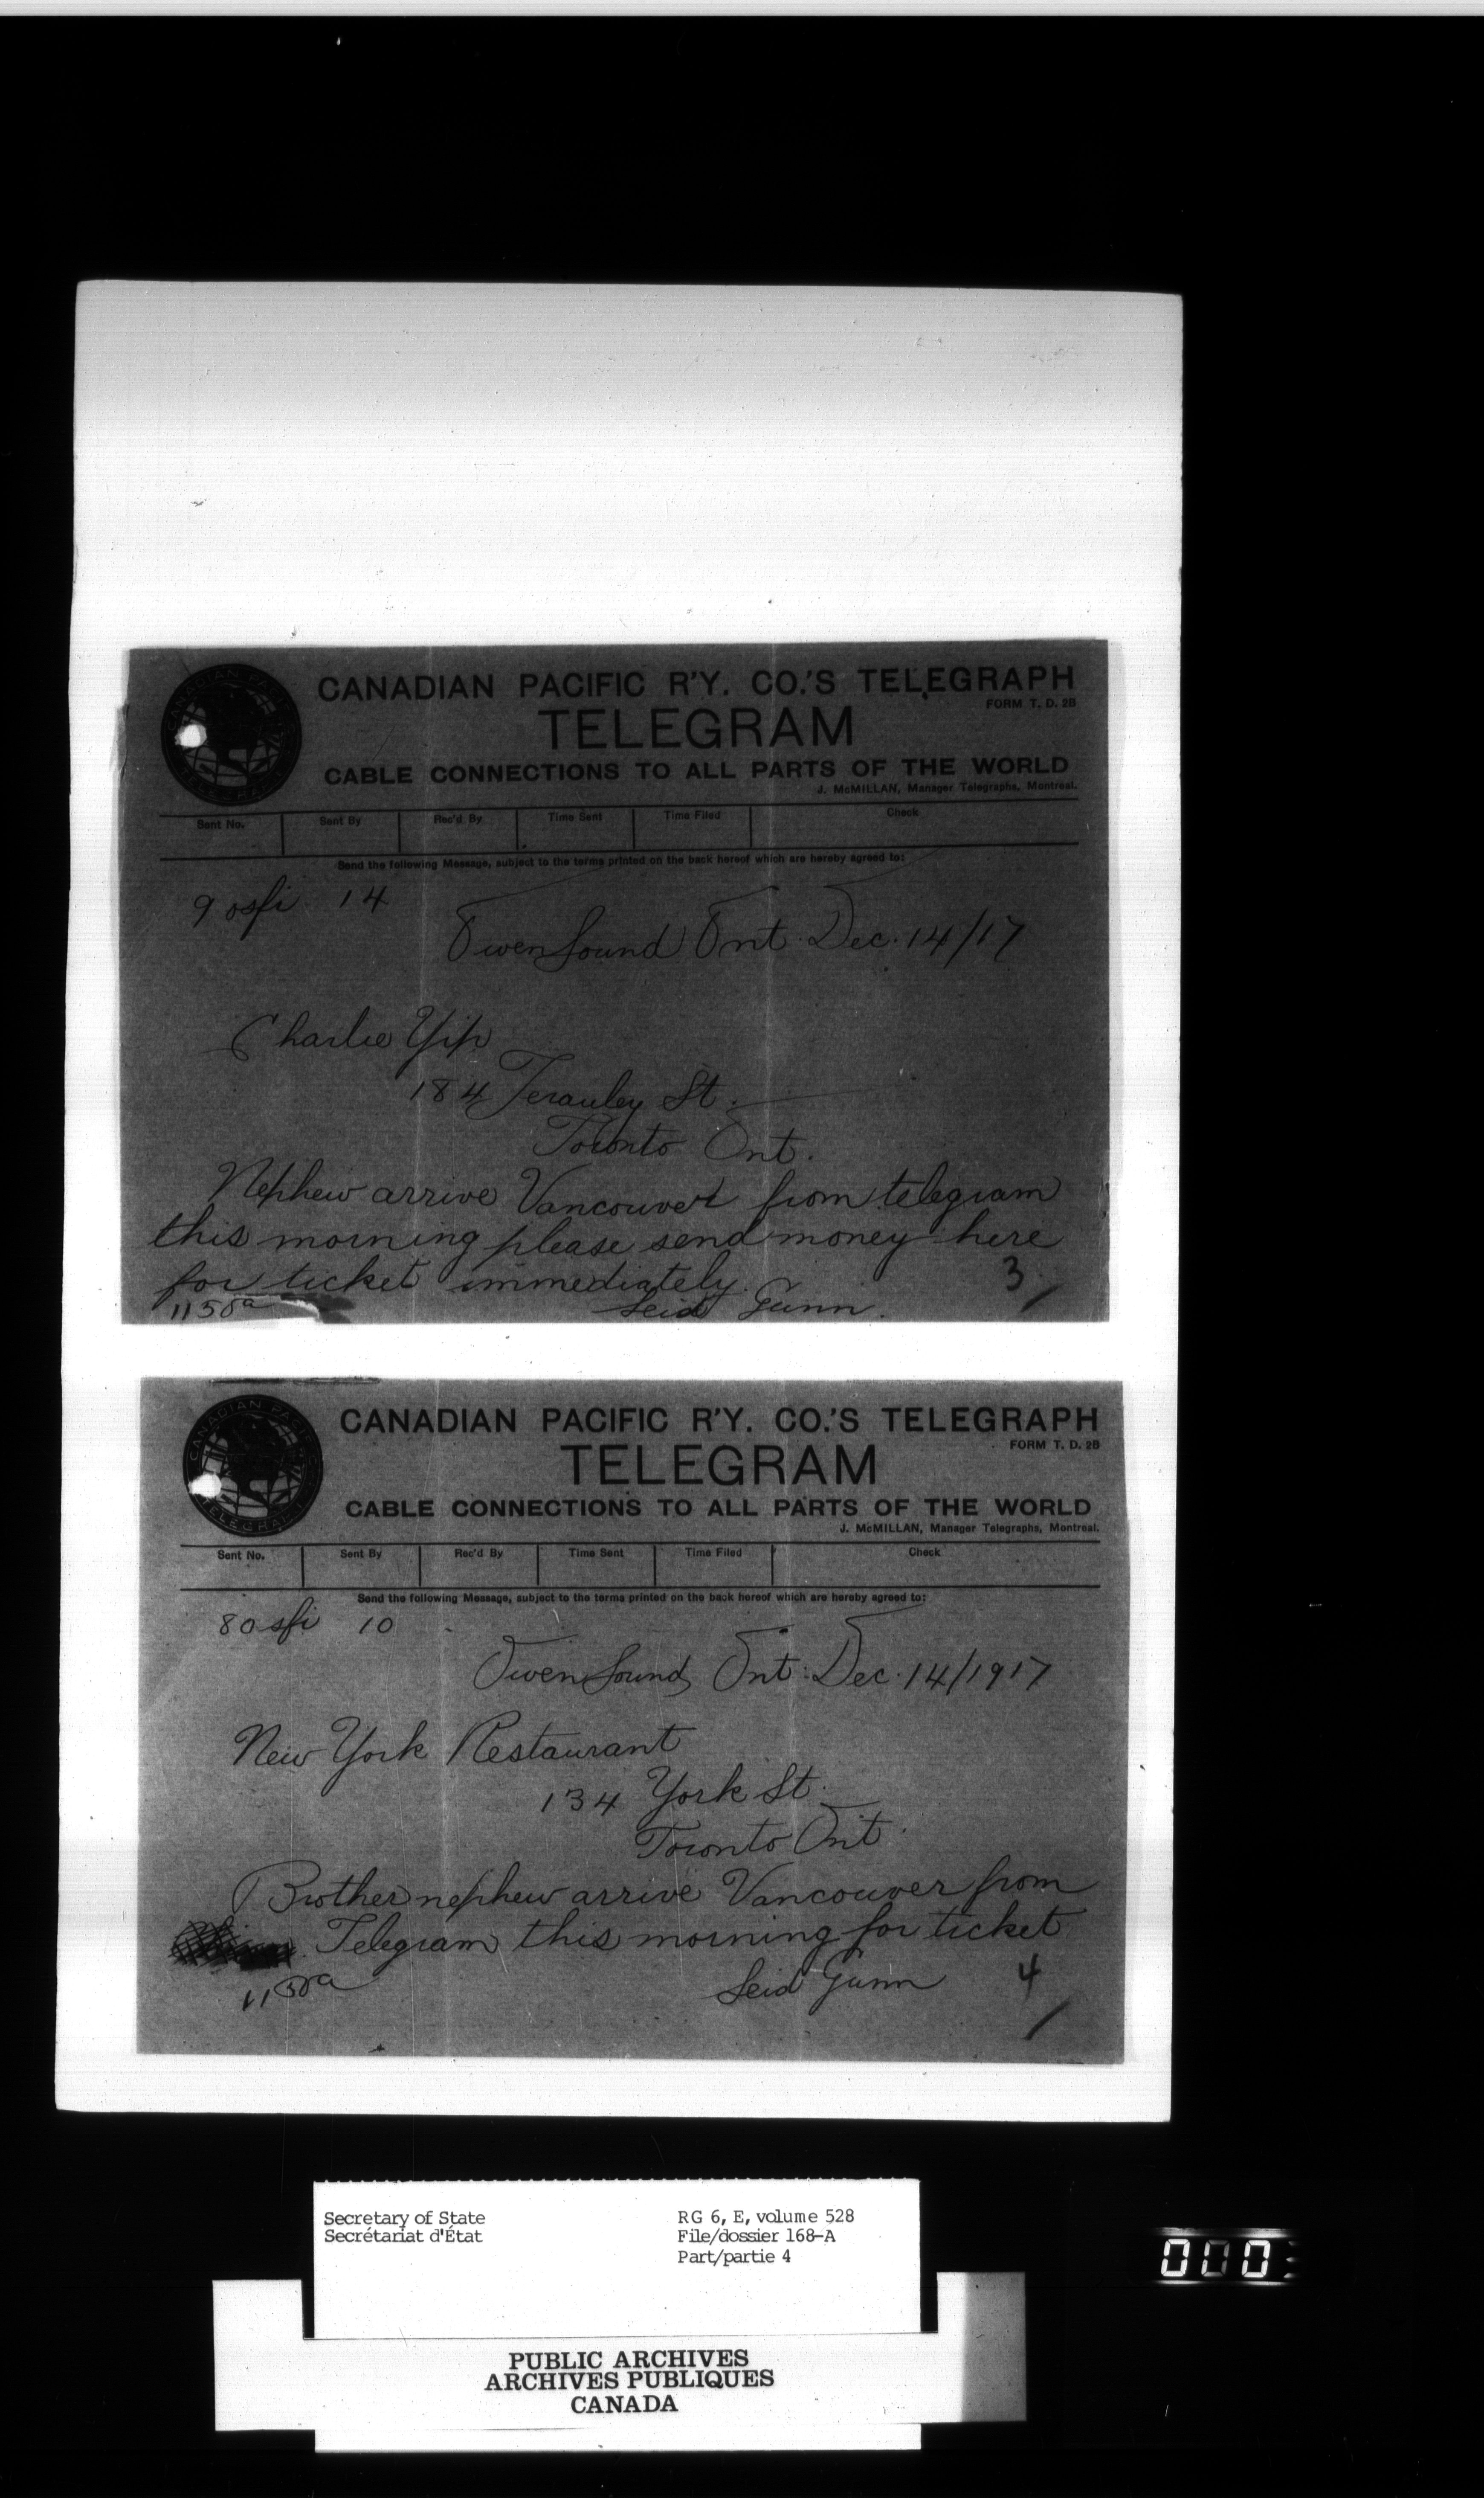 CANADIAN PACIFIC R'Y. CO.'S TELEGRAPH
FORM T. D. 2B
TELEGRAM
CABLE CONNECTIONS TO ALL PARTS OF THE WORLD
J. McMILLAN, Manager Telegraphs, Montreal.
Sent No. Sent By Rec'd By Time Sent Time Filed Check
Send the following Message, subject to the terms printed on the back hereof which are hereby agreed to:
9 osfi 14
Owen Sound Ont. Dec. 14/17
Charlie Yip
184 Terauley St.
Toronto Ont.
Nephew arrive Vancouver from telegram
this morning please send money here
for ticket immediately.
1150a Seid Gunn. 3
CANADIAN PACIFIC R'Y. CO.'S TELEGRAPH
FORM T. D. 2B
TELEGRAM
CABLE CONNECTIONS TO ALL PARTS OF THE WORLD
J. McMILLAN, Manager Telegraphs, Montreal.
Sent No. Sent By Rec'd By Time Sent Time Filed Check
Send the following Message, subject to the terms printed on the back hereof which are hereby agreed to:
8 osfi 10
Owen Sound Ont. Dec. 14/1917
New York Restaurant
134 York St.
Toronto Ont.
Brother nephew arrive Vancouver from
Telegram this morning for ticket
1150a Seid Gunn 4
Secretary of State RG 6, E, volume 528
Secrétariat d'État File/dossier 168-A
Part/partie 4
000
PUBLIC ARCHIVES
ARCHIVES PUBLIQUES
CANADA